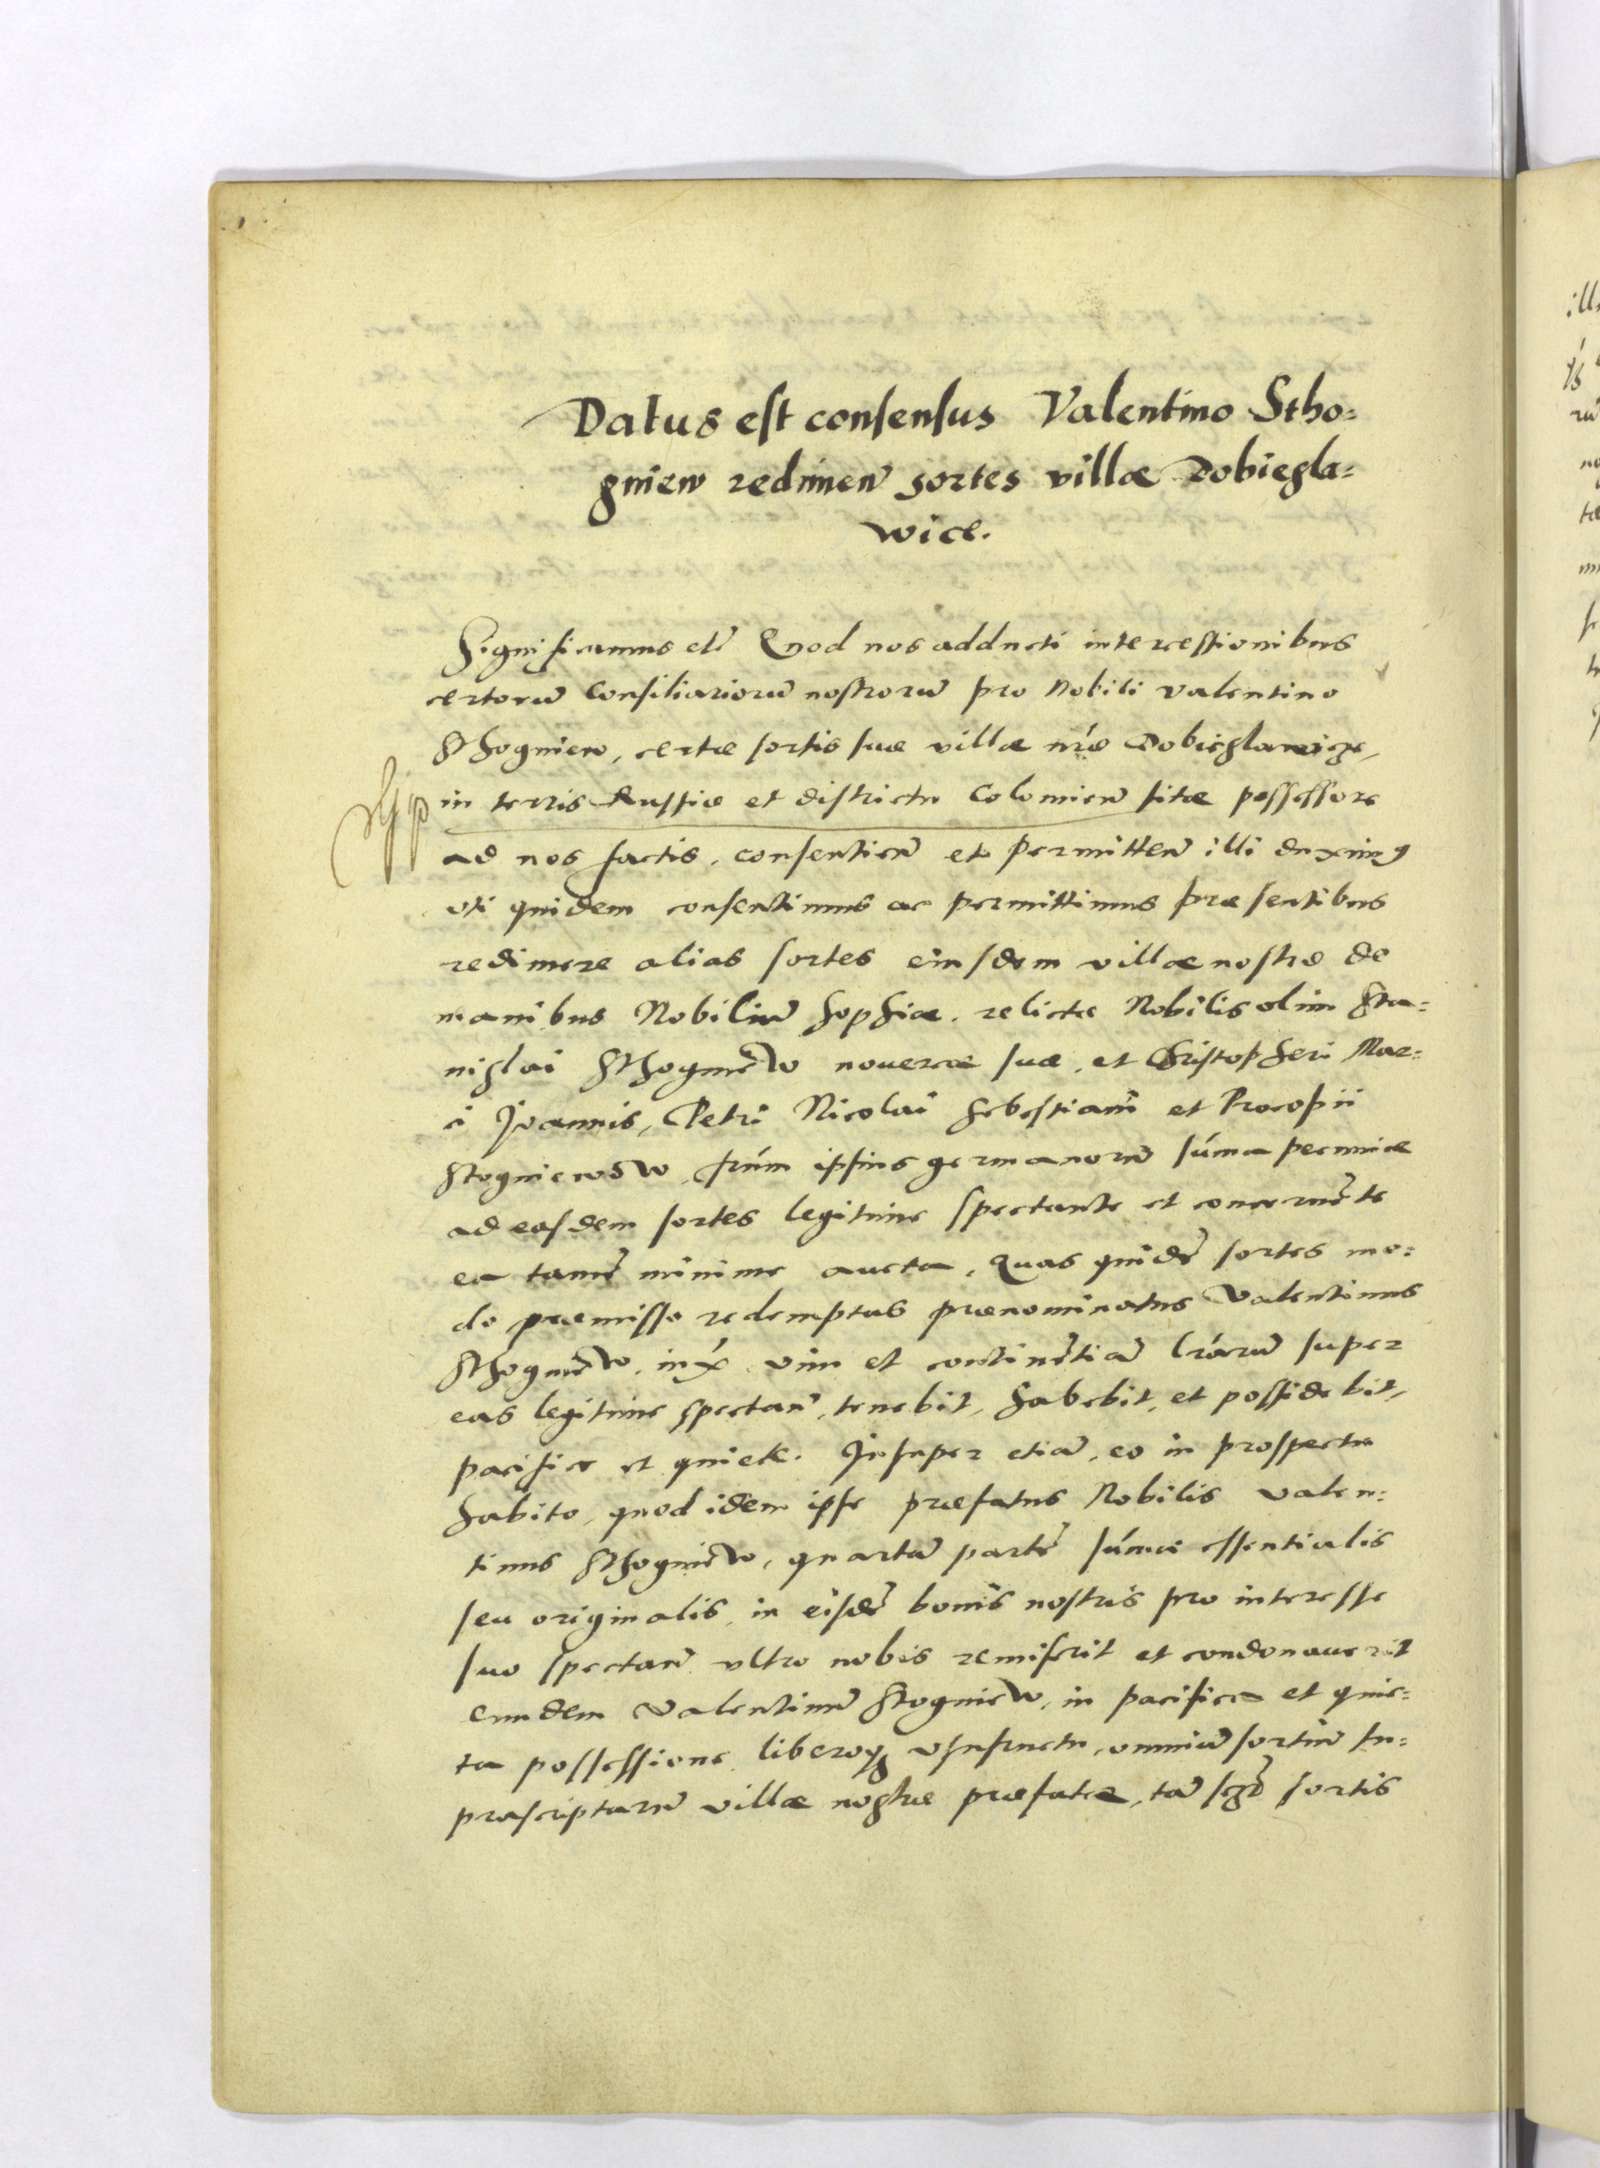 Datus est consensus Valentino Stho=
gniew redimen̄ sortes villæ Dobiegla=
wice.
Significamus etc̄ Quod nos adducti intercessionibus
certorū Consiliariorū nostrorū pro Nobili Valentino
Sthogniew, certæ sortis suæ villæ nr̄æ Dobieglawicze,
in terris Russiæ et districtu Colomien̄ sitæ possessore
ad nos factis, consentien̄ et permitten̄ illi duximꝰ
vti quidem consentimus ac permittimus præsentibus
redimere alias sortes eiusdem villæ nostræ de
manibus Nobiliū Sophiæ, relictæ Nobilis olim Sta=
nislai Sthogniew nouercæ suæ, et Christopheri Mar=
ci Joannis, Petri Nicolai Sebestiani et Procopii
Stogniewow, fr̄um ipsius germanorū sūma pecuniæ
ad easdem sortes legitime spectante et concernēte
ea tamē minime aucta, Quas quidē sortes mo=
do præmisso redemptas prænominatus Valentinus
Sthogniew, iux̄ vim et continētiā lr̄arū super
eas legitime spectan̄, tenebit, habebit, et possidebit,
pacifice et quiete. Insuper etiā, eo in prospectu
habito, quod idem ipse præfatus Nobilis Valen=
tinus Sthogniew, quartā partē sūmæ essentialis
seu originalis, in eisdē bonis nostris pro interesse
suo spectan̄ vltro nobis remiserit et condonauerit
eundem Valentinū Stogniew, in pacifica et quie=
ta possessione liberoq̄ꝫ vsufructu, omniū sortiū su=
prascriptarū villæ nostræ præfatæ, tā sc̄dæ sortis